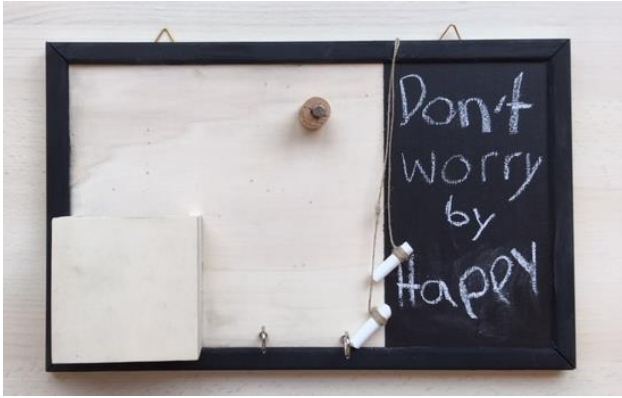 Don't
worry
by
Happy